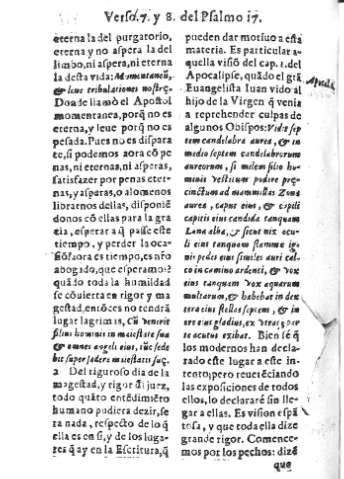 Verso. 7. y 8. del Psalmo 17.
eterna la del purgatorio,
eterna y no aspera la del
limbo, ni aspera, ni eterna
la desta vida: Momentaneũ,
& leue tribulationis nostrę.
Donde llamò el Apostol
momentanea, porq̃ no es
eterna, y leue porq̃ no es
pesada. Pues no es dispara
te, si podemos aora cõ pe
nas, ni eterna, ni asperas,
satisfazer por penas eter-
nas, y asperas, o alomenos
librarnos dellas, disponiẽ
donos cõ ellas para la gra
cia, esperar a q̃ passe este
tiempo, y perder la oca-
siõ? aora es tiempo, es nr̃o
abogado, que esperamos?
quãdo toda la humildad
se cõuierta en rigor y ma
gestad, entõces no tendrà
lugar lagrimas, Cũ venerit
filius hominis in maiestate sua
& omnes angeli eius, tũc sede
bit super sedem maiestatis suę.
2 Del riguroso dia de la
magestad, y rigor d̃l juez,
todo quãto entẽdimiẽto
humano pudiera dezir, se
ra nada, respecto de lo q̃
ella es en si, y de los luga-
res q̃ ay en la Escritura, q̃
pueden dar motiuo a esta
materia. Es particular a-
quella visiõ del cap. 1. del
Apocalipse, quãdo el grã
Euangelista Iuan vido al
hijo de la Virgen q̃ venia
a reprehender culpas de
algunos Obispos: Vidi sep
tem candelabra aurea, & in
medio septem candelabrorum
aureorum, similem filio ho-
minis vestitum podere pre-
cinctum ad mammillas Zona
aurea, caput eius, & capilli
capitis eius candida tanquam
Lana alba, & sicut nix, ocu-
li eius tanquam flamma ig-
nis pedes eius similes auri cal-
co in camino ardenti, & vox
eius tanquam vox aquarum
multarum, & habebat in dex
tera eius stellas septem, & in
ore eius gladius, ex vtraque par
te acutus exibat. Bien sè q̃
los modernos han decla-
rado este lugar a este in-
tento; pero reuerẽciando
las exposiciones de todos
ellos, lo declararé sin lle-
gar a ellas. Es vision espã
tosa, y que toda ella dize
grande rigor. Comence-
mos por los pechos: dizẽ
que